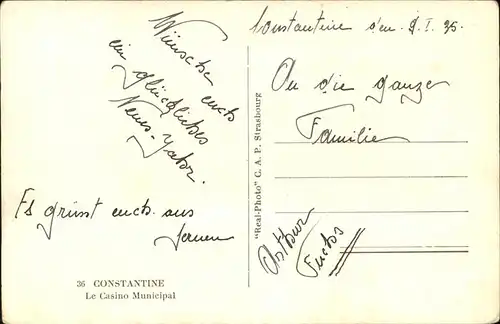 Wünsche euch
ein glückliches
Neues-Jahr.
Es grüsst euch aus
fernen
36 CONSTANTINE
Le Casino Municipal
"Real-Photo" C. A. P. Strasbourg
Constantine d'en 9. I. 35.
An die ganze
Familie
Arthur
Fuchs